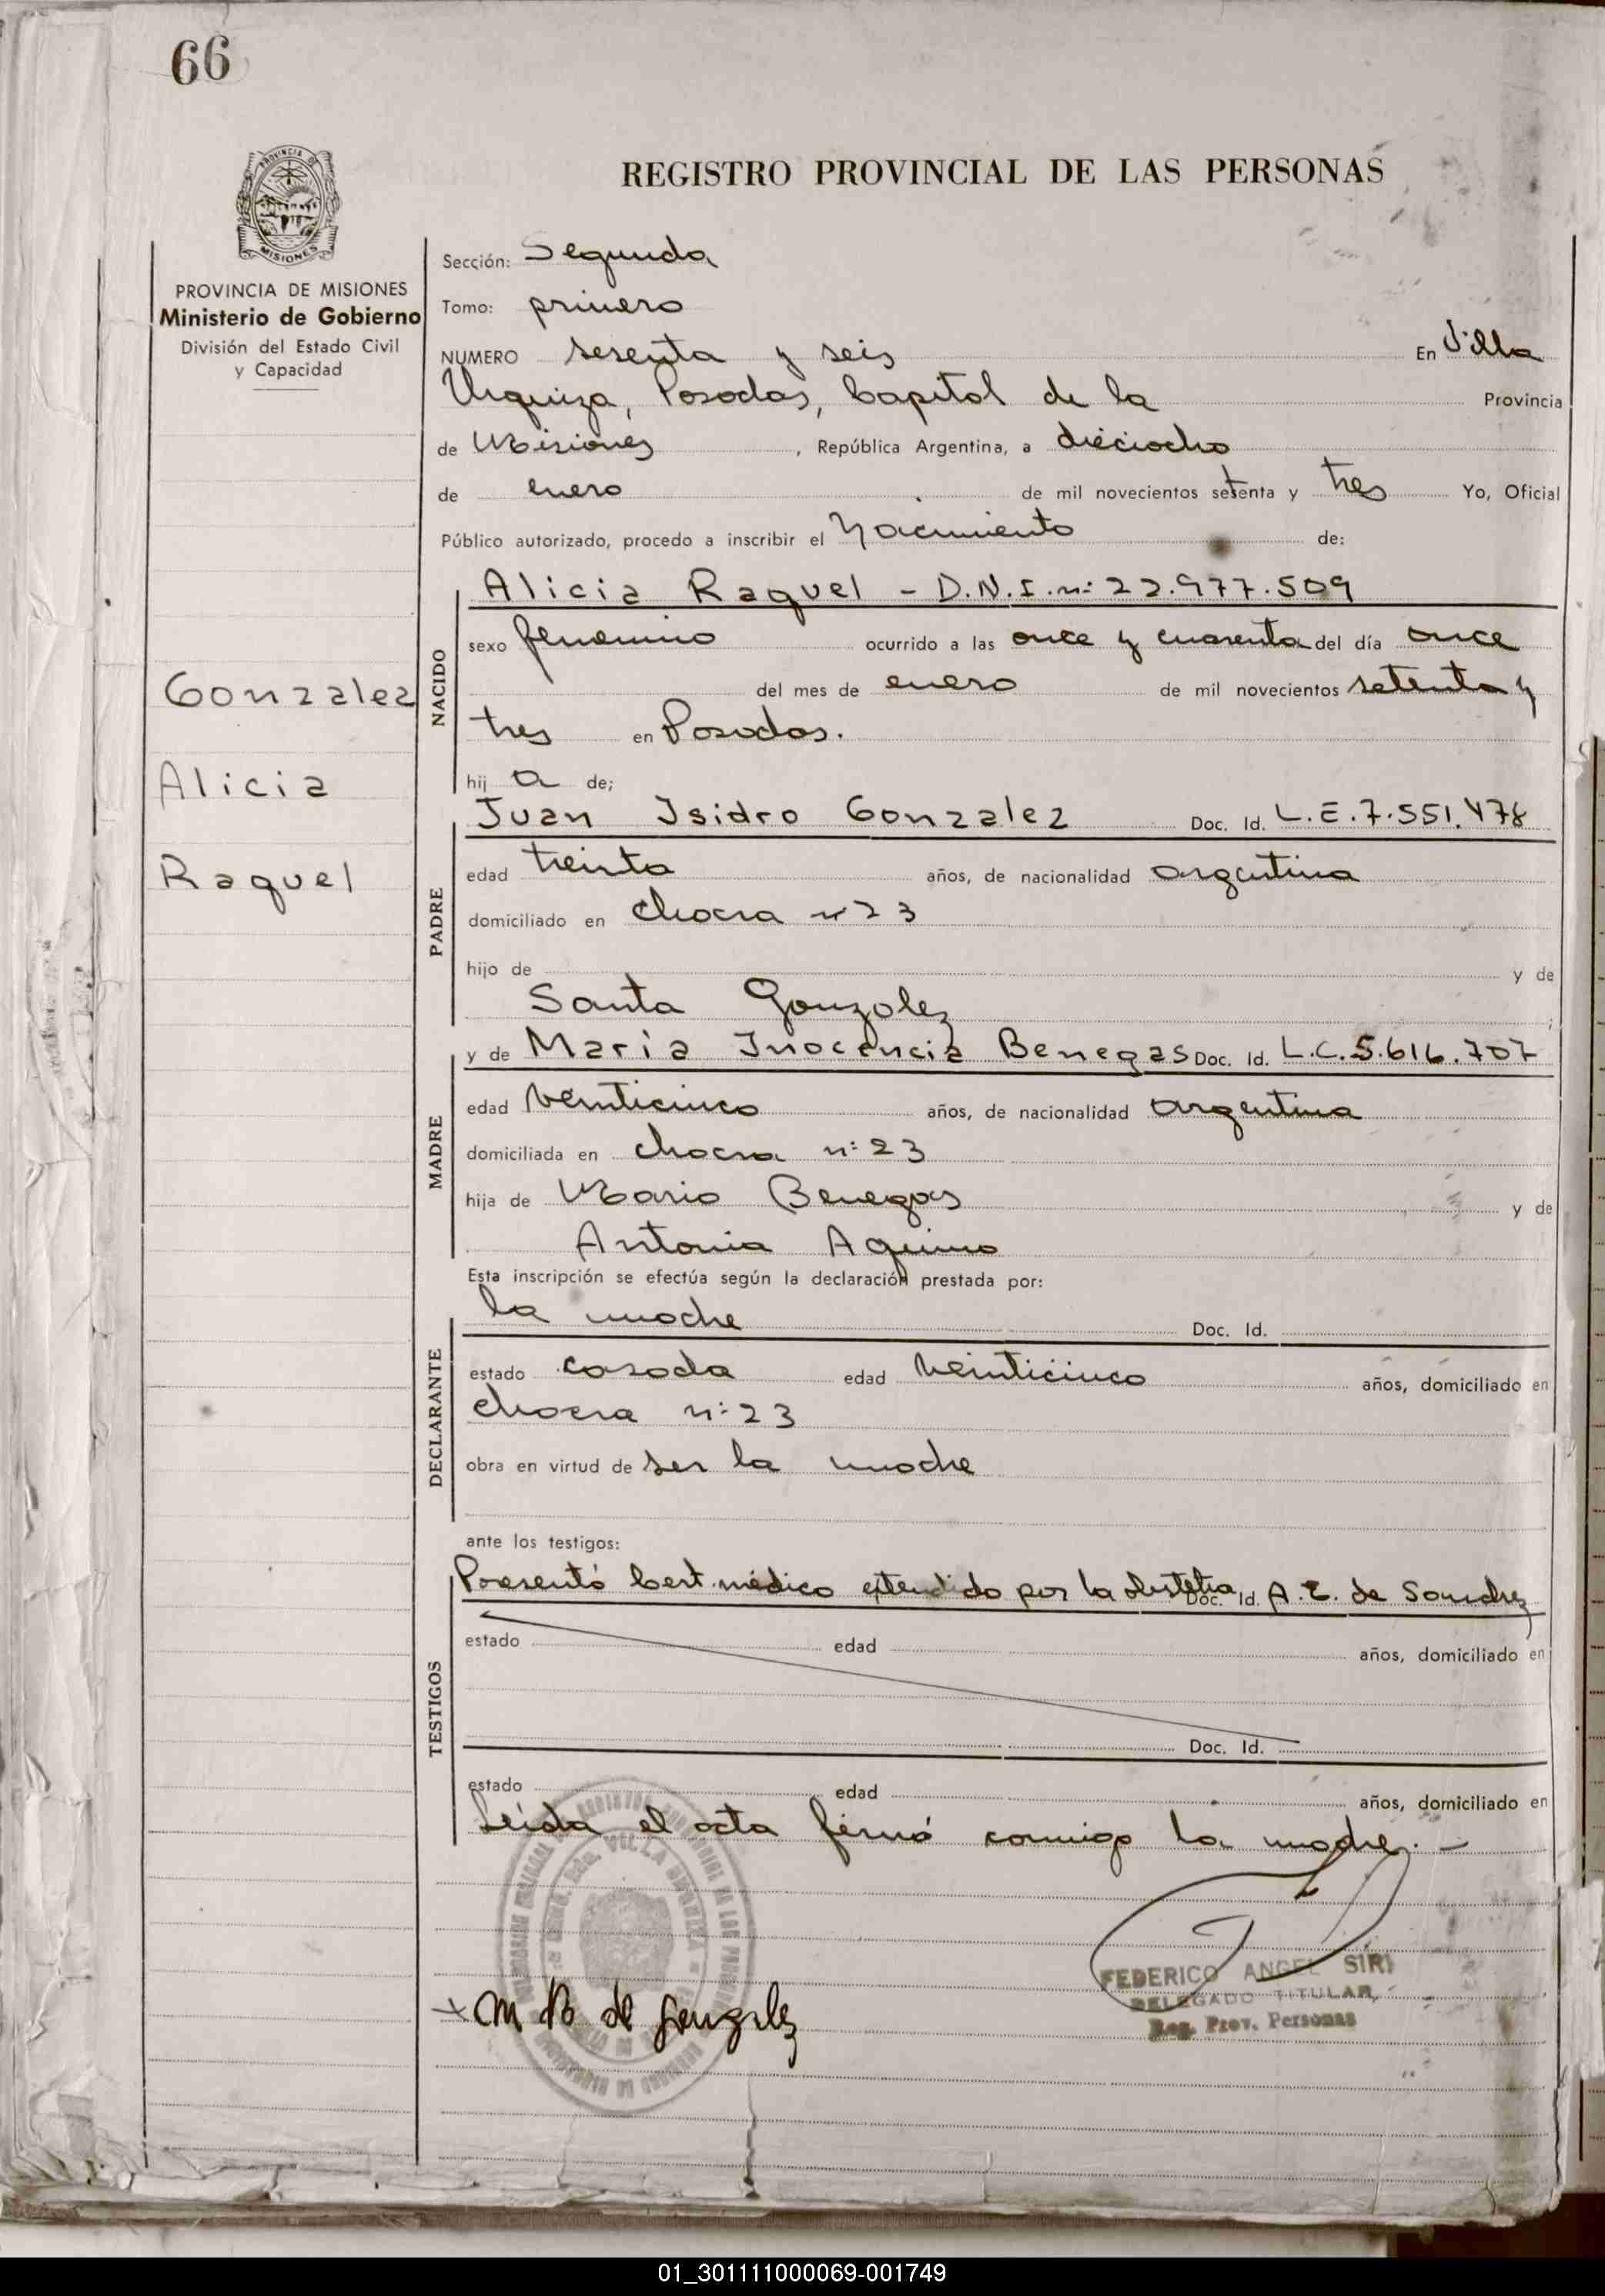 66
PROVINCIA DE
MISIONES
REGISTRO PROVINCIAL DE LAS PERSONAS
PROVINCIA DE MISIONES
Ministerio de Gobierno
División del Estado Civil
y Capacidad
Gonzalez
Alicia
Raquel
Sección: Segunda
Tomo: primero
NUMERO sesenta y seis En Villa
Urquiza, Posadas, Capital de la Provincia
de Misiones, República Argentina, a dieciocho
de enero de mil novecientos setenta y tres Yo, Oficial
Público autorizado, procedo a inscribir el Nacimiento de:
NACIDO
Alicia Raquel - D.N.I. n: 22.977.509
sexo femenino ocurrido a las once y cuarenta del día once
del mes de enero de mil novecientos setenta y
tres en Posadas.
hij a de;
PADRE
Juan Isidro Gonzalez Doc. Id. L.E.7.551.478
edad treinta años, de nacionalidad argentina
domiciliado en chacra n 23
hijo de y de
Santa Gonzalez ;
MADRE
y de María Inocencia Benegas Doc. Id. L.C.5.616.707
edad veinticinco años, de nacionalidad argentina
domiciliada en chacra n: 23
hija de Mario Benegas y de
Antonia Aquino
Esta inscripción se efectúa según la declaración prestada por:
DECLARANTE
la madre Doc. Id.
estado casada edad veinticinco años, domiciliado en
chacra n: 23
obra en virtud de ser la madre
ante los testigos:
TESTIGOS
Presentó Cert. médico extendido por la obstetra, Doc. Id. A. E. de Sanchez
estado edad años, domiciliado en
Doc. Id.
estado edad años, domiciliado en
Leída el acta firmó conmigo la madre. -
VILLA URQUIZA
FEDERICO ANGEL SIRI
DELEGADO TITULAR
Reg. Prov. Personas
x M B de Gonzalez
01_301111000069-001749